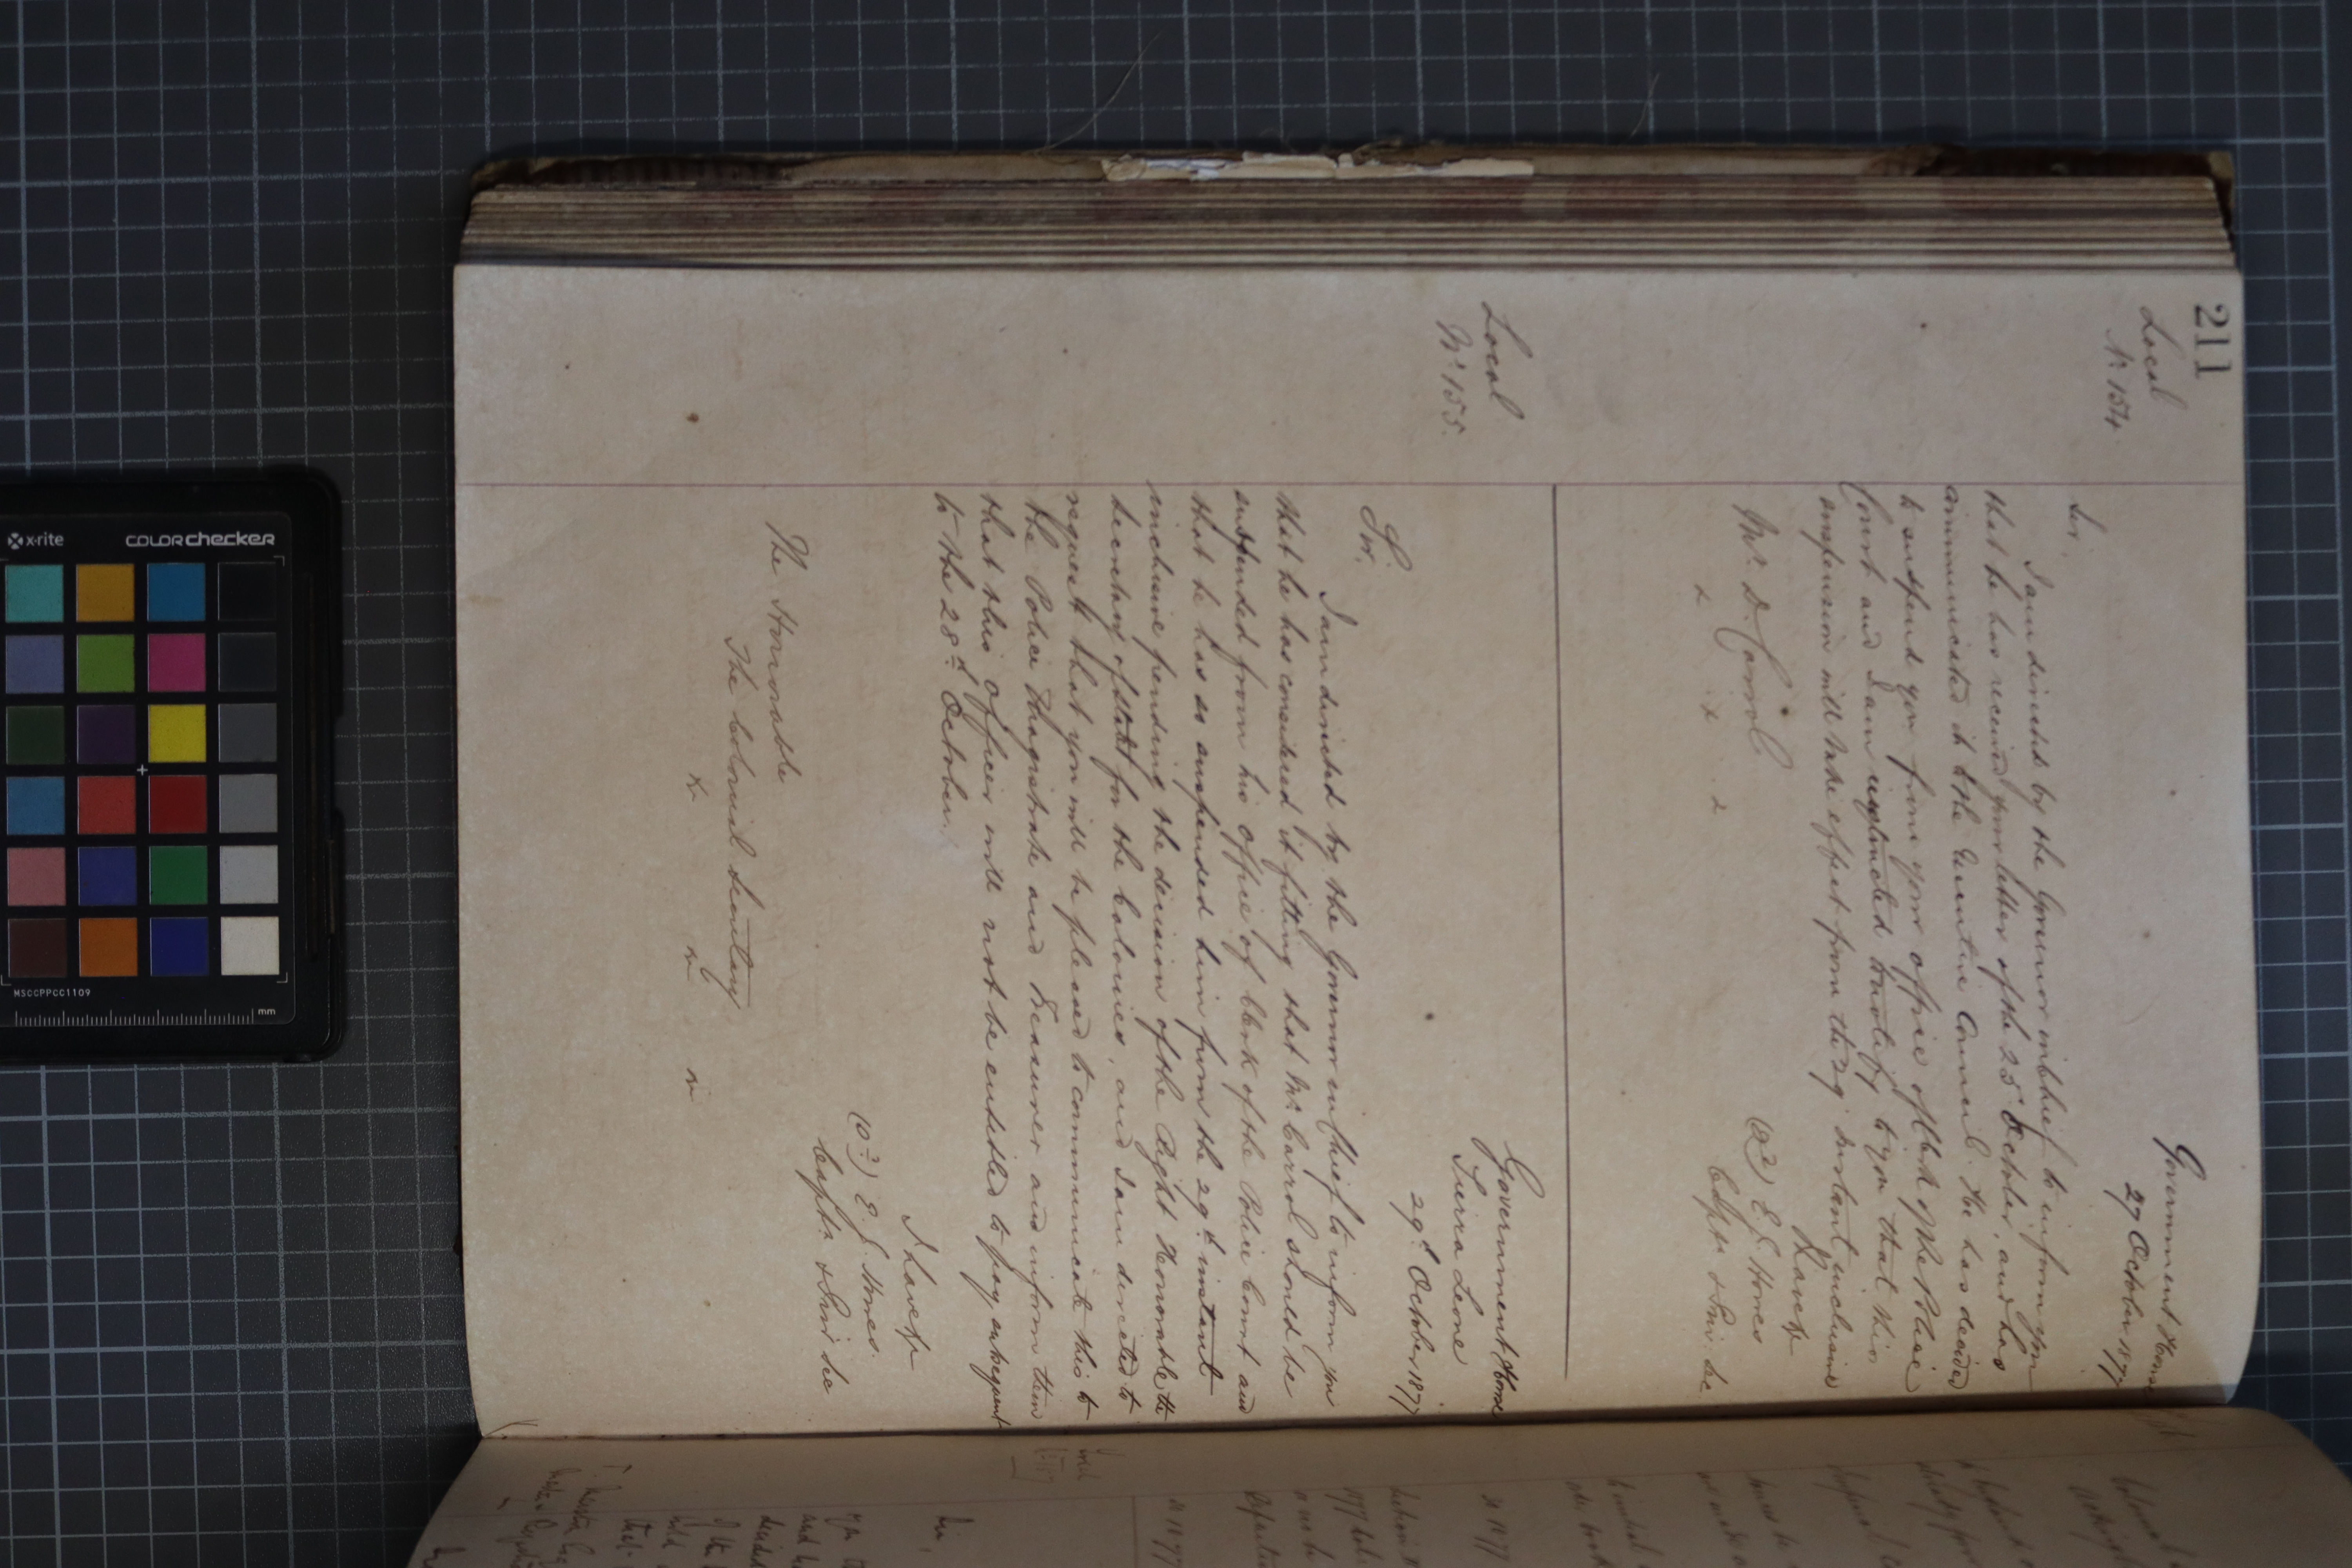 211
Local
No. 154
Government House
29 October 1877
Sir,
I am directed by the Governor in Chief to inform you
that he has received your letter of the 25 October, and has
communicated it to the Executive Council. He has decided
to suspend you from your office of Clerk of the Police
Court and I am instructed to notify to you that this
suspension will take effect from the 29 instant inclusive
I have &c
(Sd) E. J. Homes
Capt. & Pri. Sec
Mr. D. Carrol
x x x
Local
No. 155.
Government House
Sierra Leone
29th October 1877
Sir,
I am directed by the Governor in Chief to inform you
that he has considered it fitting that Mr. Carrol should be
suspended from his office of Clerk of the Police Court and
that he has so suspended him from the 29th instant
inclusive pending the decision of the Right Honorable the
Secretary of State for the Colonies, and I am directed to
request that you will be pleased to communicate this to
the Police Magistrate and Treasurer and inform them
that this officer will not be entitled to pay subsequent
to the 28th October.
I have &c
(Sd) E. J. Homes.
Capt. & Pri. Sec
The Honorable
The Colonial Secretary
x x x
Sir,
x-rite
colorchecker
MSCCPPCC1109
mm